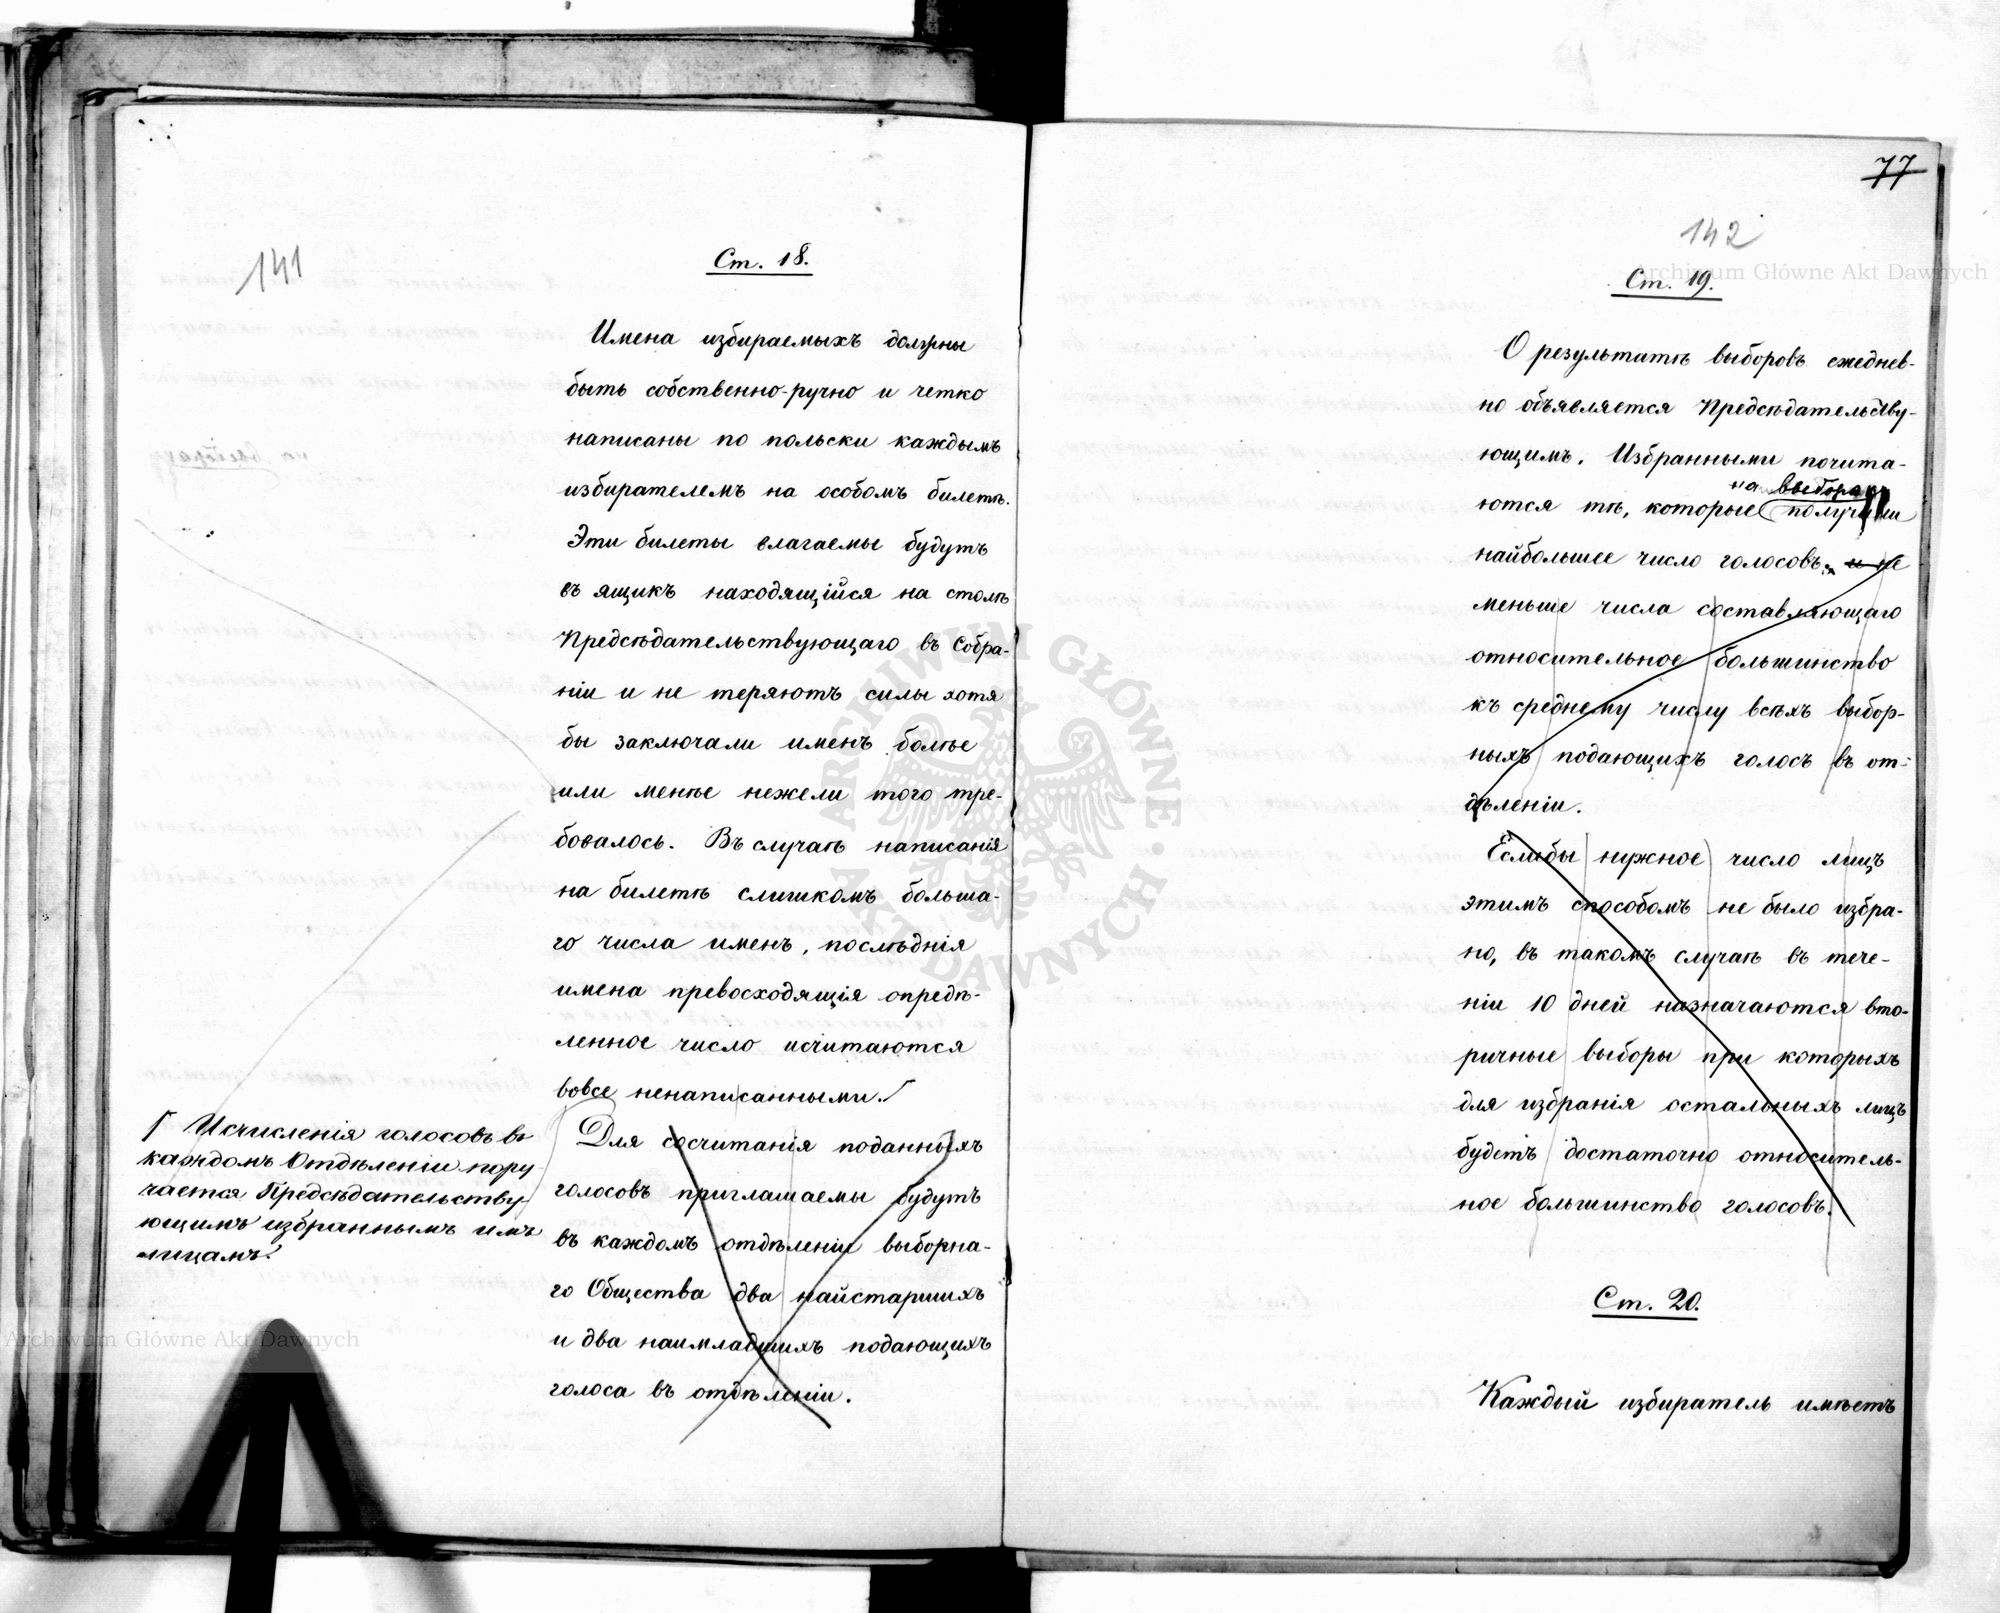 141
Ст. 18.
Имена избираемыхъ должны
быть собственно-ручно и четко
написаны по польски каждымъ
избирателемъ на особомъ билетѣ.
Эти билеты влагаемы будутъ
въ ящикъ находящійся на столѣ
Предсѣдательствующаго въ Собра-
ніи и не теряютъ силы хотя
бы заключали именъ болѣе
или менѣе нежели того тре-
бовалось. Въ случаѣ написанія
на билетѣ слишкомъ больша-
го числа именъ, послѣднія
имена превосходящія опредѣ-
ленное число исчитаются
вовсе ненаписанными.
Для сосчитанія поданныхъ
голосовъ приглашаемы будутъ
въ каждомъ отдѣленіи выборна-
го Общества два найстаршихъ
и два наимладшихъ подающихъ
голоса въ отдѣленіи.
Исчисленія голосовъ въ
каждомъ Отдѣленіи пору-
чается Предсѣдательству-
ющимъ избраннымъ имъ
лицамъ.
77
142
Ст. 19.
О результатѣ выборовъ ежеднев-
но объявляется Предсѣдательству-
ющимъ. Избранными почита-
на выборахъ
ются тѣ, которые получили
найбольшее число голосовъ, и не
меньше числа составляющаго
относительное большинство
къ среднему числу всѣхъ выбор-
ныхъ подающихъ голосъ въ от-
дѣленіи.
Еслибы нужное число лицъ
этимъ способомъ не было избра-
но, въ такомъ случаѣ въ тече-
ніи 10 дней назначаются вто-
ричные выборы при которыхъ
для избранія остальныхъ лицъ
будетъ достаточно относитель-
ное большинство голосовъ.
Ст. 20.
Каждый избиратель имѣетъ
Archiwum Główne Akt Dawnych
Archiwum Główne Akt Dawnych
ARCHIWUM GŁÓWNE AKT DAWNYCH